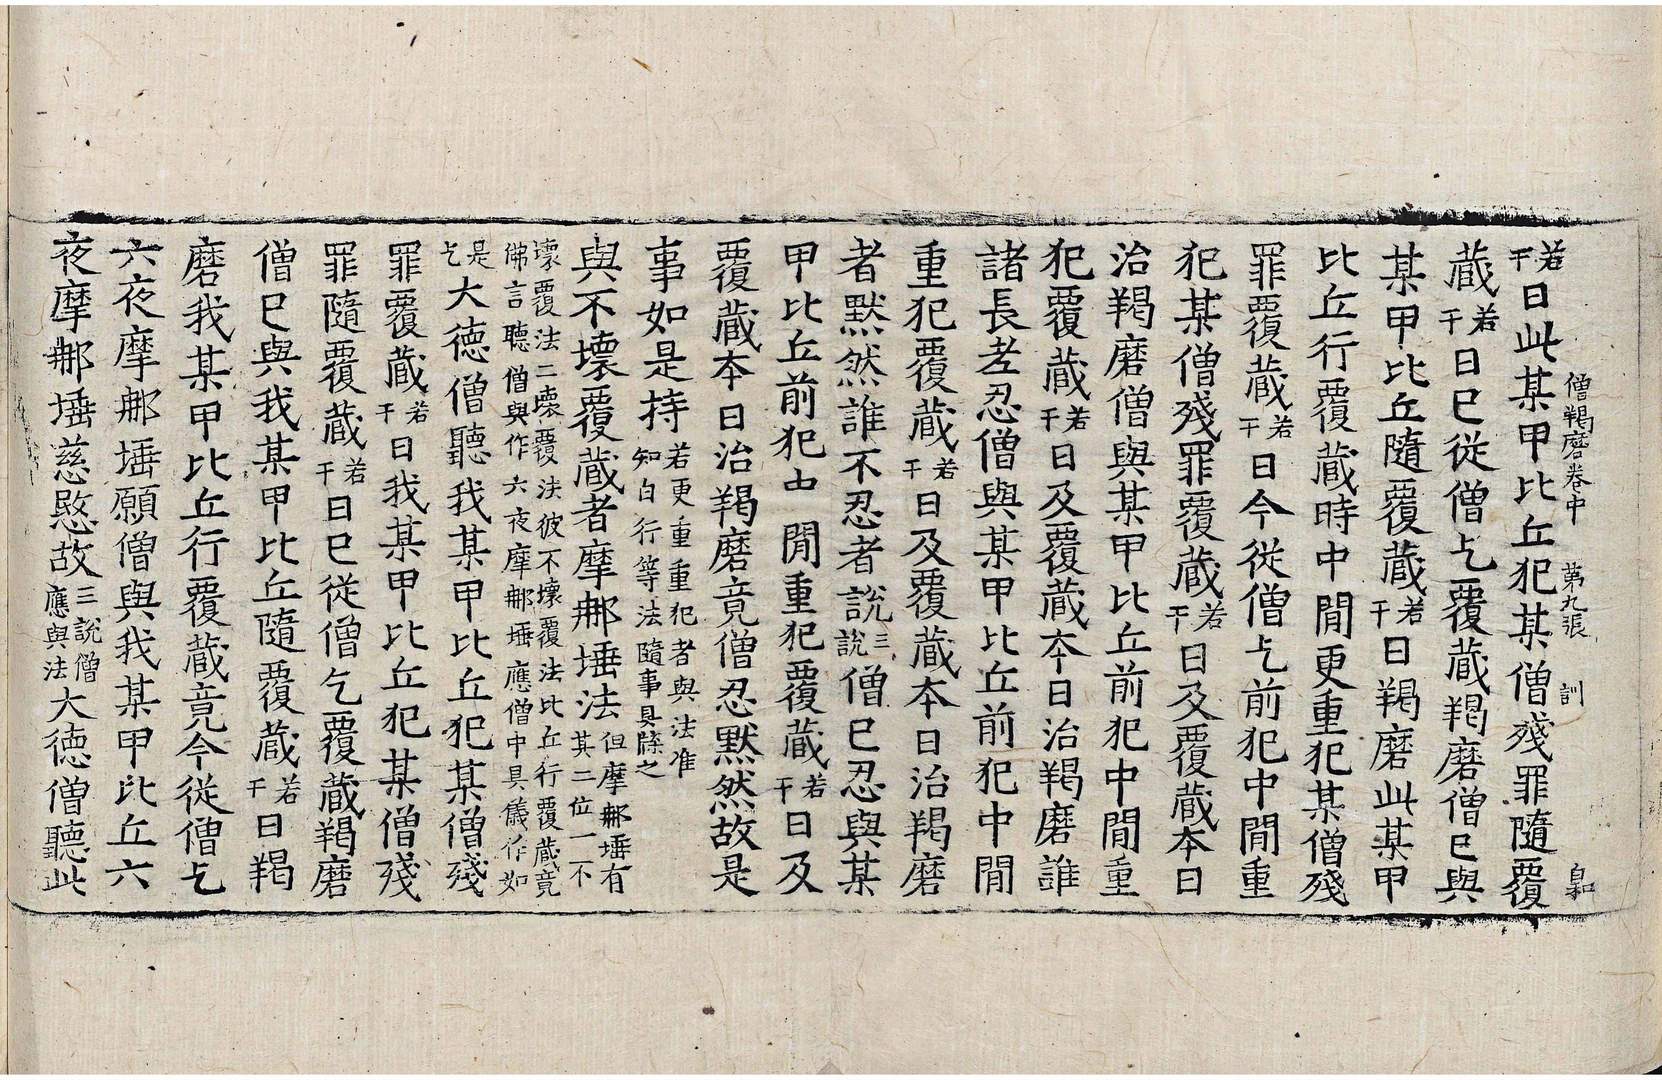 僧羯磨卷中 第九張 訓 自和
若干日此某甲比丘犯某僧殘罪隨覆
藏若干日已從僧乞覆藏羯磨僧已與
某甲比丘隨覆藏若干日羯磨此某甲
比丘行覆藏時中間更重犯某僧殘
罪覆藏若干日今從僧乞前犯中間重
犯某僧殘罪覆藏若干日及覆藏本日
治羯磨僧與某甲比丘前犯中間重
犯覆藏若干日及覆藏本日治羯磨誰
諸長老忍僧與某甲比丘前犯中間
重犯覆藏若干日及覆藏本日治羯磨
者默然誰不忍者說三說僧已忍與某
甲比丘前犯中間重犯覆藏若干日及
覆藏本日治羯磨竟僧忍默然故是
事如是持若更重重犯者與法准知白行等法隨事具牒之
與不壞覆藏者摩那埵法但摩那埵有其二位一不
壞覆法二壞覆法彼不壞覆法比丘行覆藏竟佛言聽僧與作六夜摩那埵應僧中具儀作如
是乞大德僧聽我某甲比丘犯某僧殘
罪覆藏若干日我某甲比丘犯某僧殘
罪隨覆藏若干日已從僧乞覆藏羯磨
僧已與我某甲比丘隨覆藏若干日羯
磨我某甲比丘行覆藏竟今從僧乞
六夜摩那埵願僧與我某甲比丘六
夜摩那埵慈愍故三說僧應與法大德僧聽此